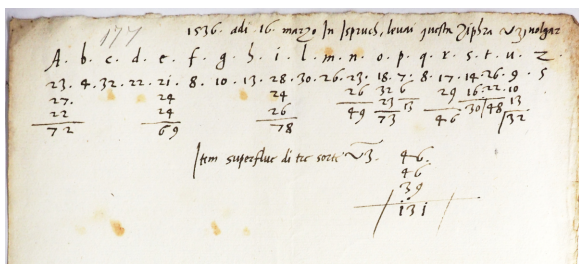 177
1536 · adi · 16 · marzo In Ispruch, levai questa Ziphra volgar
A · b · c · d · e · f · g · h · i · l · m · n · o · p · q · r · s · t · u · z
23 · 4 · 32 · 22 · 21 · 8 · 10 · 13 · 28 · 30 · 26 · 23 · 18 · 7 · 8 · 17 · 14 · 26 · 9 · 5
27 · 24 24 26 32 6 29 16 22 10
22 24 26 49 23 13 46 30 48 13
72 69 78 73 32
Item superflue di tre sorte 46 ·
46
39
131